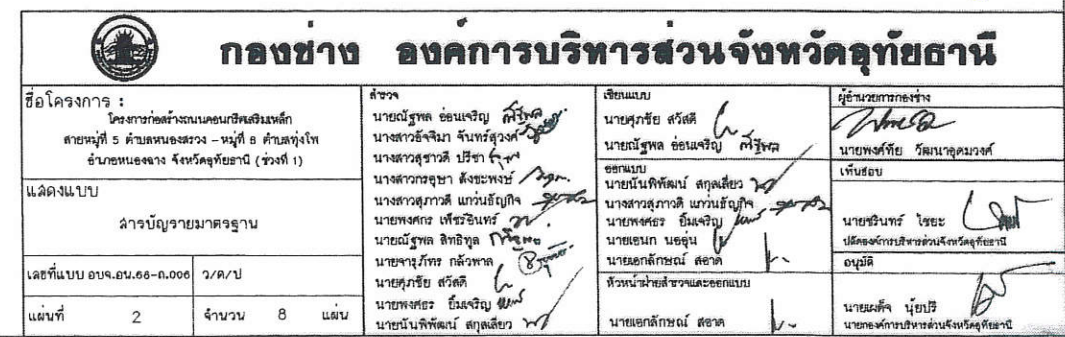 กองช่าง องค์การบริหารส่วนจังหวัดอุทัยธานี
ชื่อโครงการ :
โครงการก่อสร้างถนนคอนกรีตเสริมเหล็ก
สายหมู่ที่ 5 ตำบลหนองสรวง – หมู่ที่ 8 ตำบลทุ่งโพ
อำเภอหนองฉาง จังหวัดอุทัยธานี (ช่วงที่ 1)
แสดงแบบ
สารบัญรายมาตรฐาน
เลขที่แบบ อบจ.อน.66-ถ.006 ว/ด/ป
แผ่นที่ 2 จำนวน 8 แผ่น
สำรวจ
นายณัฐพล อ่อนเจริญ
นางสาวอัจจิมา จันทร์สุวงค์
นางสาวสุชาวดี ปรีชา
นางสาวกรอุษา สังขะพงษ์
นางสาวสุภาวดี แกว่นธัญกิจ
นายพงศกร เพ็ชรอินทร์
นายณัฐพล สิทธิทูล
นายจารุภัทร กลัวพาล
นายศุภชัย สวัสดี
นายพงศธร ยิ้มเจริญ
นายนันพิพัฒน์ สกุลเลี่ยว
เขียนแบบ
นายศุภชัย สวัสดี
นายณัฐพล อ่อนเจริญ
ออกแบบ
นายนันพิพัฒน์ สกุลเลี่ยว
นางสาวสุภาวดี แกว่นธัญกิจ
นายพงศธร ยิ้มเจริญ
นายเอนก นออุ่น
นายเอกลักษณ์ สอาด
หัวหน้าฝ่ายสำรวจและออกแบบ
นายเอกลักษณ์ สอาด
ผู้อำนวยการกองช่าง
นายพงศ์ทัย วัฒนาอุดมวงศ์
เห็นชอบ
นายชรินทร์ ไชยะ
ปลัดองค์การบริหารส่วนจังหวัดอุทัยธานี
อนุมัติ
นายเผด็จ นุ้ยปรี
นายกองค์การบริหารส่วนจังหวัดอุทัยธานี